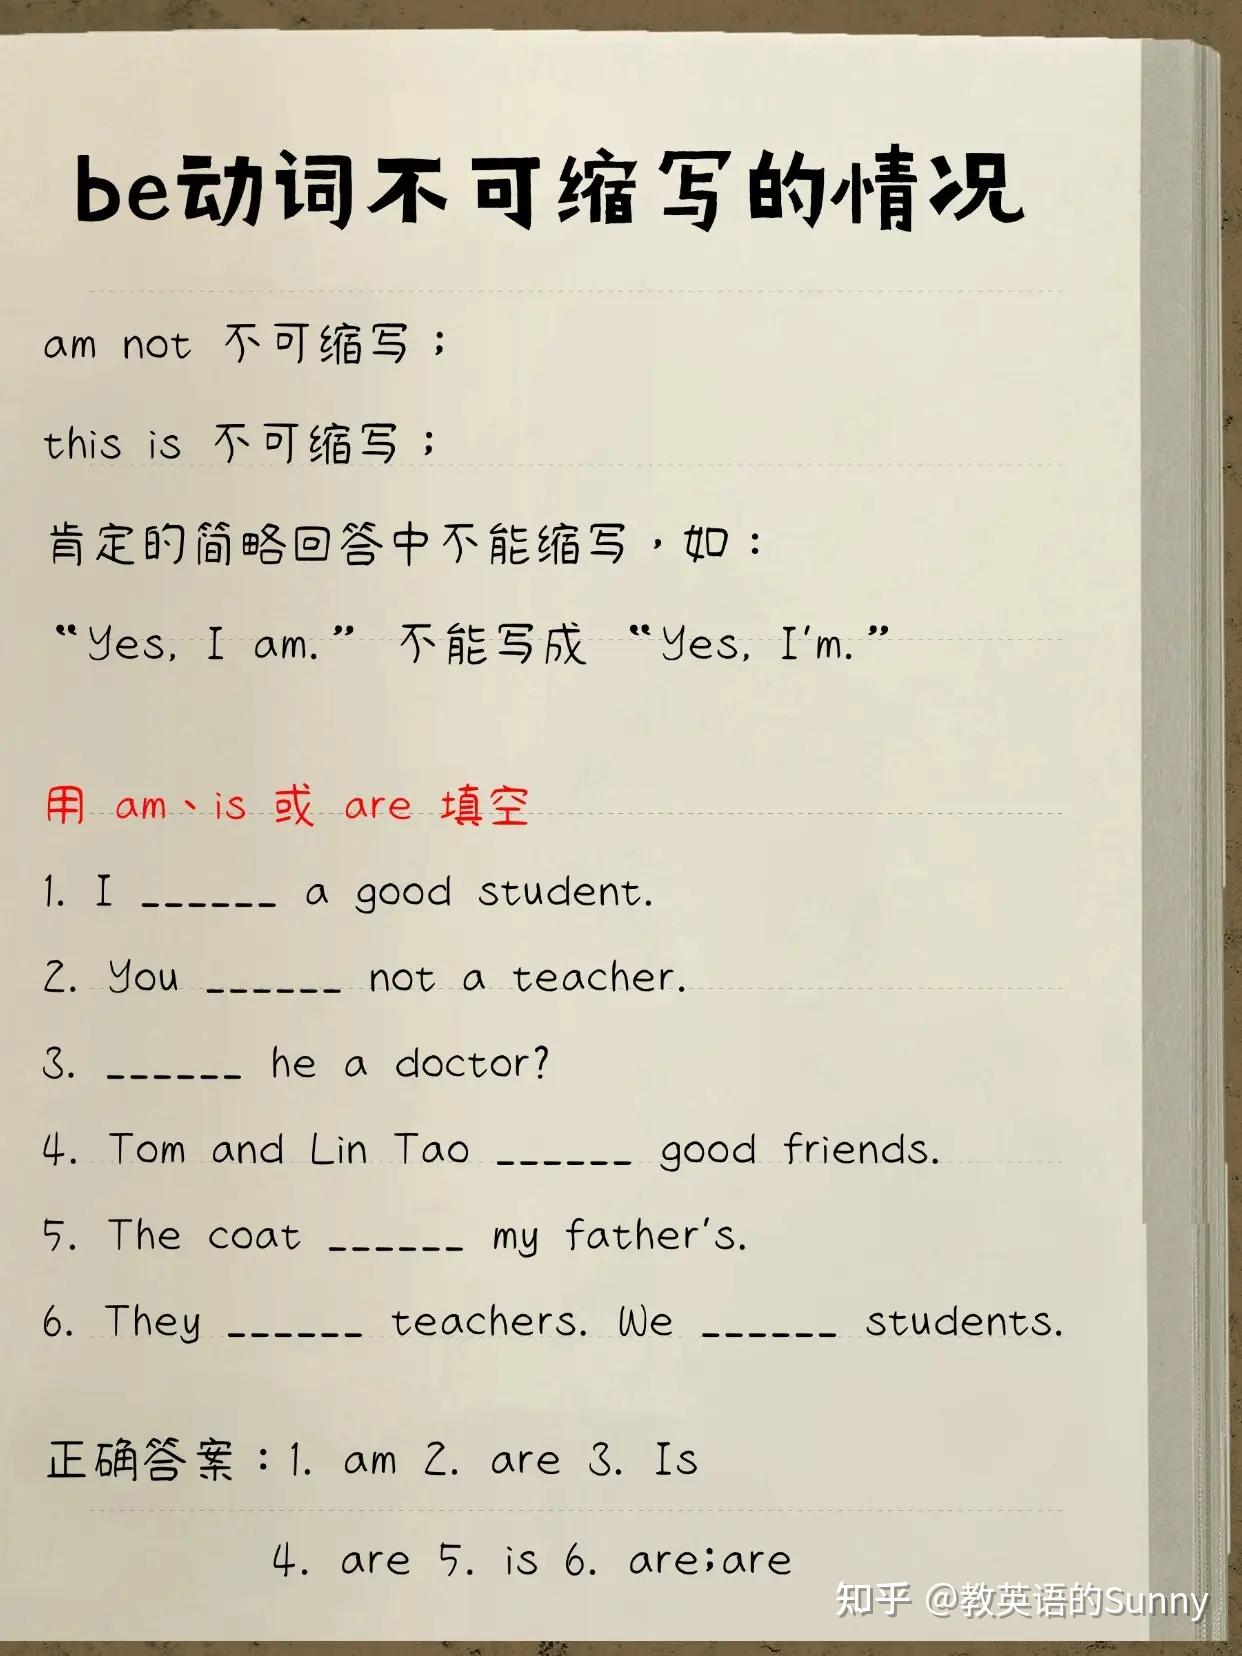 be动词不可缩写的情况
am not 不可缩写；
this is 不可缩写；
肯定的简略回答中不能缩写，如：
“Yes, I am.” 不能写成 “Yes, I'm.”
用 am、is 或 are 填空
1. I ______ a good student.
2. You ______ not a teacher.
3. ______ he a doctor?
4. Tom and Lin Tao ______ good friends.
5. The coat ______ my father's.
6. They ______ teachers. We ______ students.
正确答案：1. am 2. are 3. Is
4. are 5. is 6. are;are
知乎 @教英语的Sunny